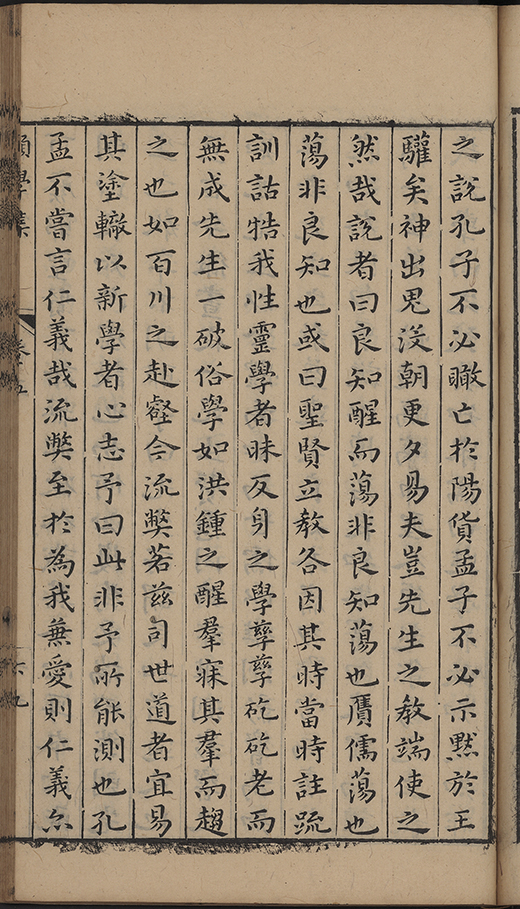 之說孔子不必瞰亡於陽貨孟子不必示默於王
驩矣神出鬼沒朝更夕易夫豈先生之教端使之
然哉說者曰良知醒而蕩非良知蕩也贗儒蕩也
蕩非良知也或曰聖賢立教各因其時當時註疏
訓詁牿我性靈學者昧反身之學孳孳矻矻老而
無成先生一破俗學如洪鍾之醒羣寐其羣而趨
之也如百川之赴壑今流獘若茲司世道者宜易
其塗轍以新學者心志予曰此非予所能測也孔
孟不嘗言仁義哉流獘至於為我兼愛則仁義亦
學集
卷十五
六九